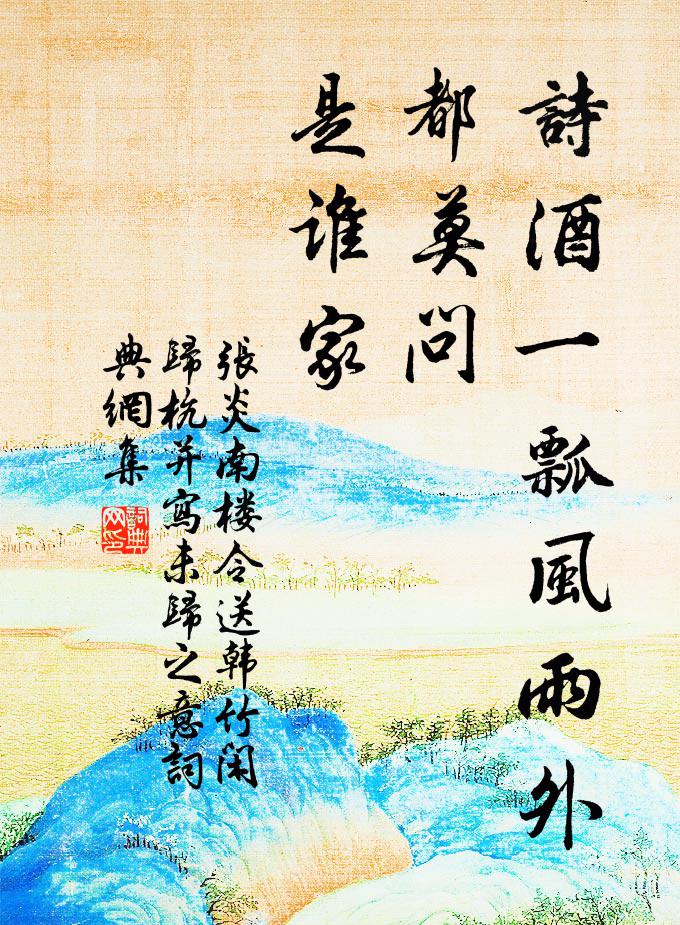 詩酒一瓢風雨外
都莫問
是誰家
張炎南楼令送韩竹闲
歸杭并寫未歸之意詞
典網集
詞典网印